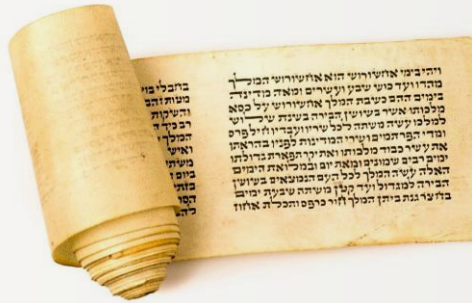 ויהי בימי אחשורוש הוא אחשורוש המלך
מהדו ועד כוש שבע ועשרים ומאה מדינה
בימים ההם כשבת המלך אחשורוש על כסא
מלכותו אשר בשושן הבירה בשנת שלוש
למלכו עשה משתה לכל שריו ועבדיו חיל פרס
ומדי הפרתמים ושרי המדינות לפניו בהראתו
את עשר כבוד מלכותו ואת יקר תפארת גדולתו
ימים רבים שמונים ומאת יום ובמלואת הימים
האלה עשה המלך לכל העם הנמצאים בשושן
הבירה למגדול ועד קטן משתה שבעת ימים
בחצר גנת ביתן המלך חור כרפס ותכלת אחוז
בחבלי
מטות זהב
והשקות
רב כיד
המלך
ואיש
ביום